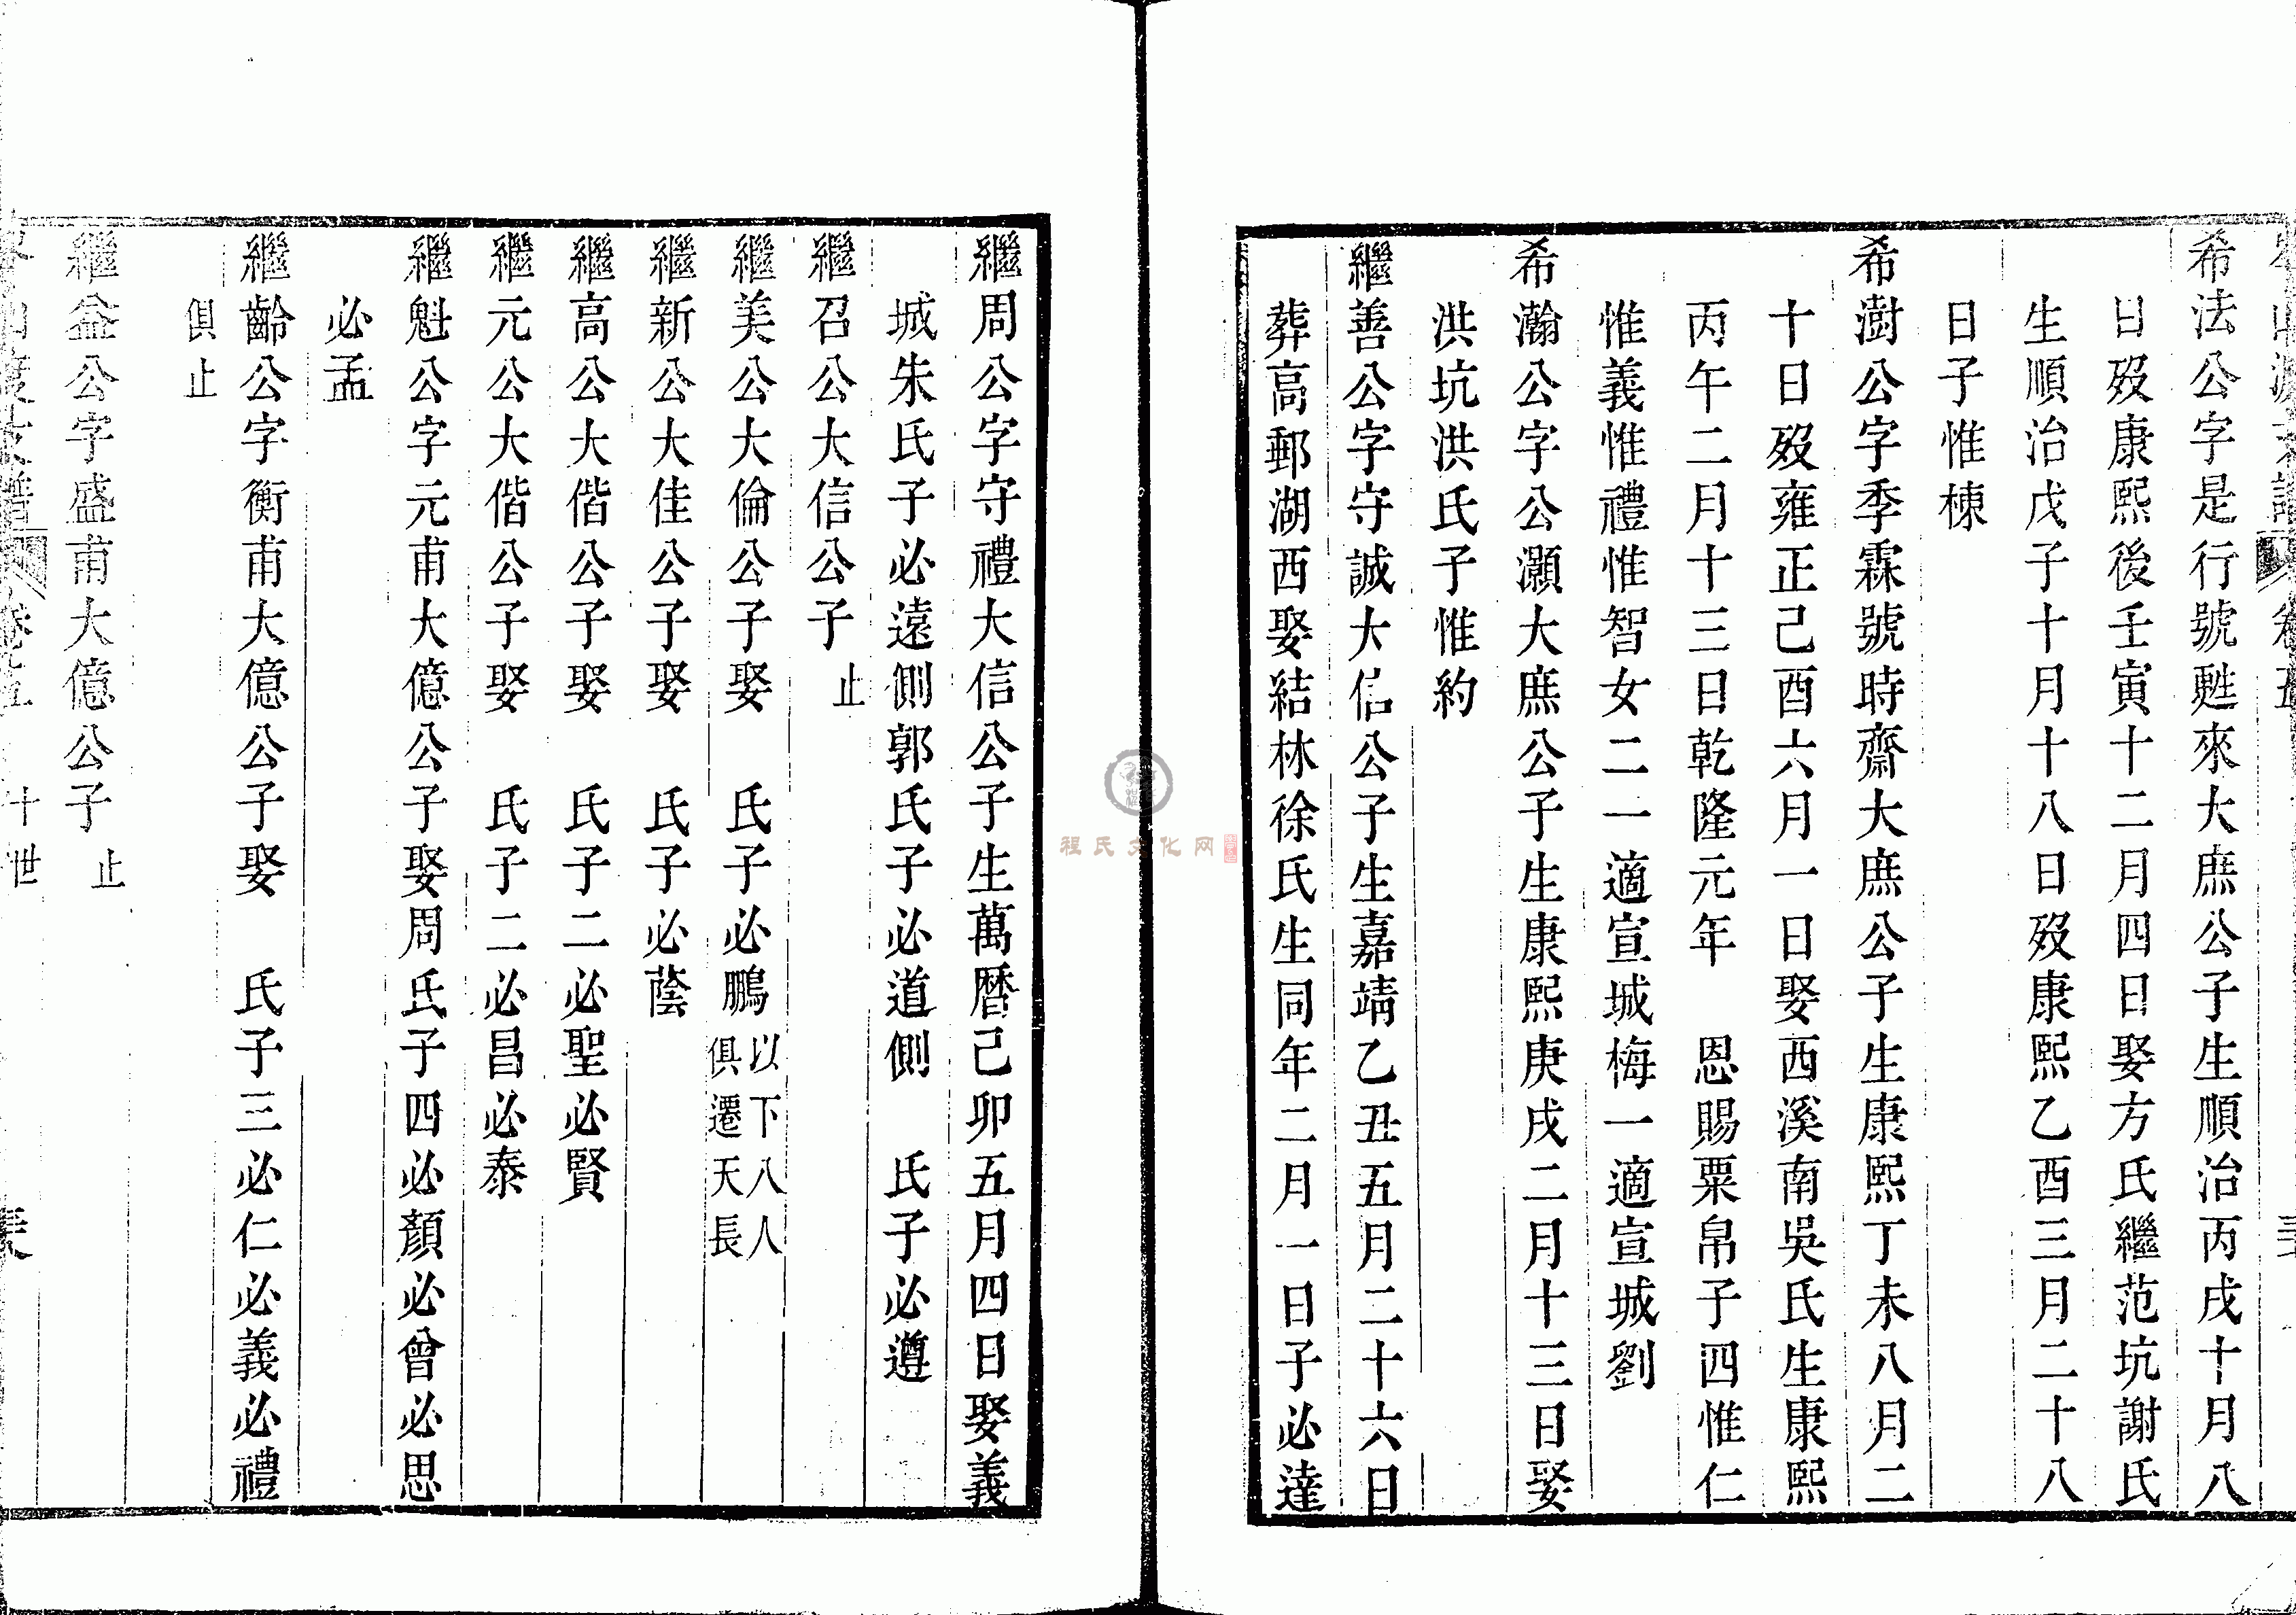 希法公字是行號甦來大庶公子生順治丙戌十月八
日歿康熙後壬寅十二月四日娶方氏繼范坑謝氏
生順治戊子十月十八日歿康熙乙酉三月二十八
日子惟棟
希澍公字季霖號時齋大庶公子生康熙丁未八月二
十日歿雍正己酉六月一日娶西溪南吳氏生康熙
丙午二月十三日乾隆元年 恩賜粟帛子四惟仁
惟義惟禮惟智女二一適宣城梅一適宣城劉
希瀚公字公灝大庶公子生康熙庚戌二月十三日娶
洪坑洪氏子惟約
繼善公字守誠大信公子生嘉靖乙丑五月二十六日
葬高郵湖西娶結林徐氏生同年二月一日子必達
程氏文化网
繼周公字守禮大信公子生萬曆己卯五月四日娶義
城朱氏子必遠側郭氏子必道側 氏子必遵
繼召公大信公子 止
繼美公大倫公子娶 氏子必鵬 以下八人俱遷天長
繼新公大佳公子娶 氏子必蔭
繼高公大偕公子娶 氏子二必聖必賢
繼元公大偕公子娶 氏子二必昌必泰
繼魁公字元甫大億公子娶周氏子四必顏必曾必思
必孟
繼齡公字衡甫大億公子娶 氏子三必仁必義必禮
俱止
繼益公字盛甫大億公子 止
十世